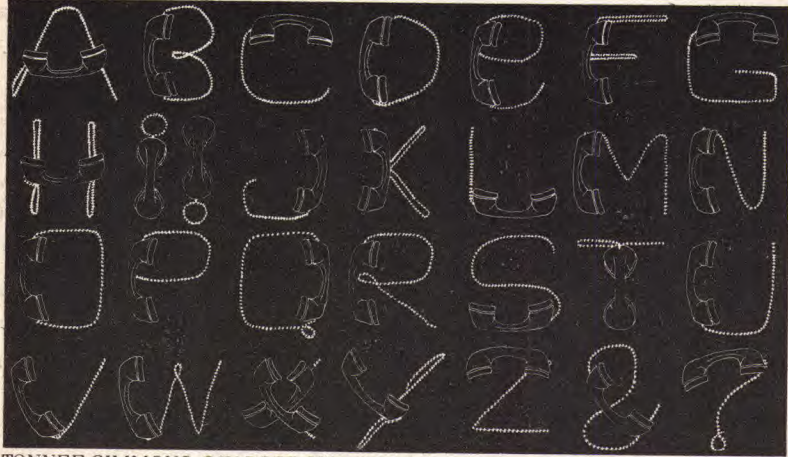 A B C D e F G
H i ! J K L M N
O P Q R S T U
V W X Y Z & ?